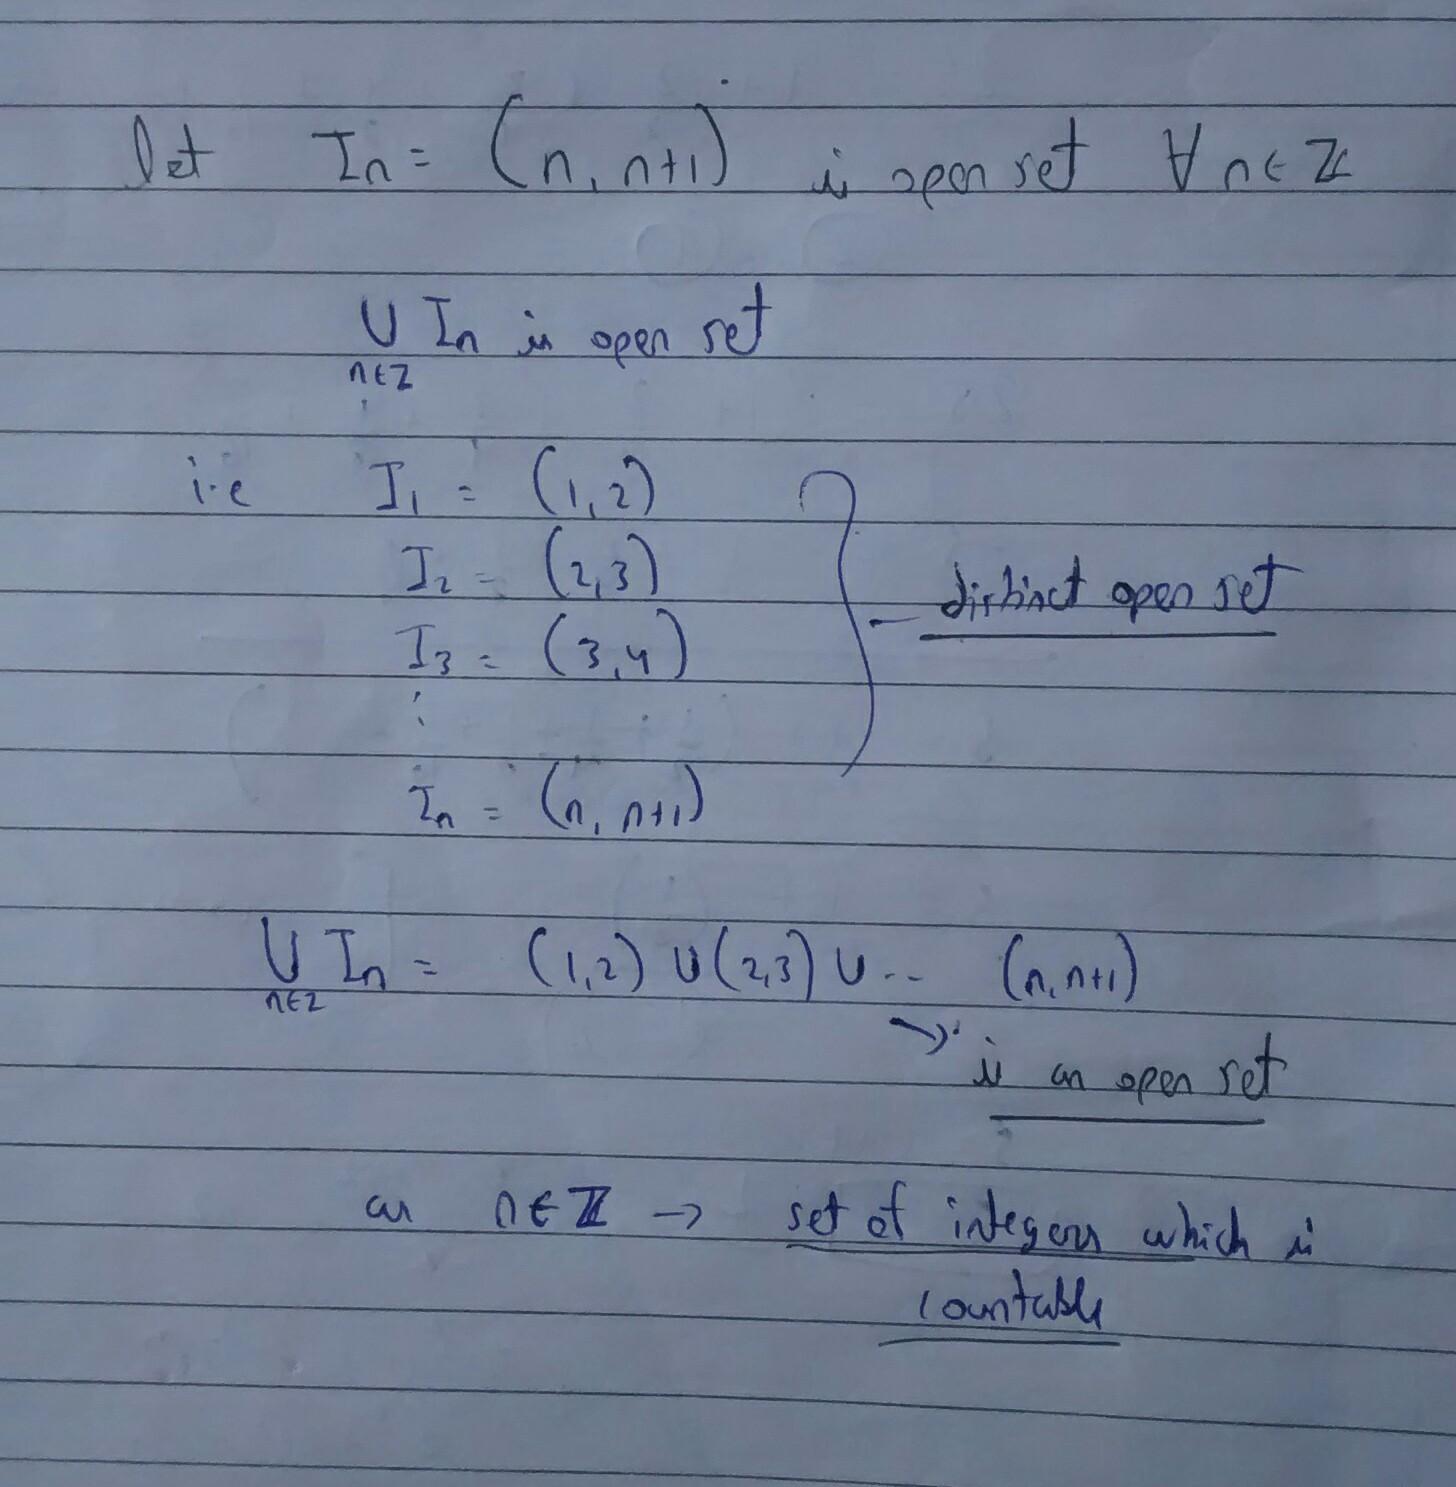 let In = (n, n+1) is open set ∀ n ∈ ℤ
∪ In is open set
n∈Z
i.e I1 = (1,2)
I2 = (2,3)
I3 = (3,4)
⋮
In = (n, n+1)
distinct open set
∪ In = (1,2) ∪ (2,3) ∪ .. (n, n+1)
n∈Z
→ is an open set
as n ∈ ℤ → set of integers which is
countable